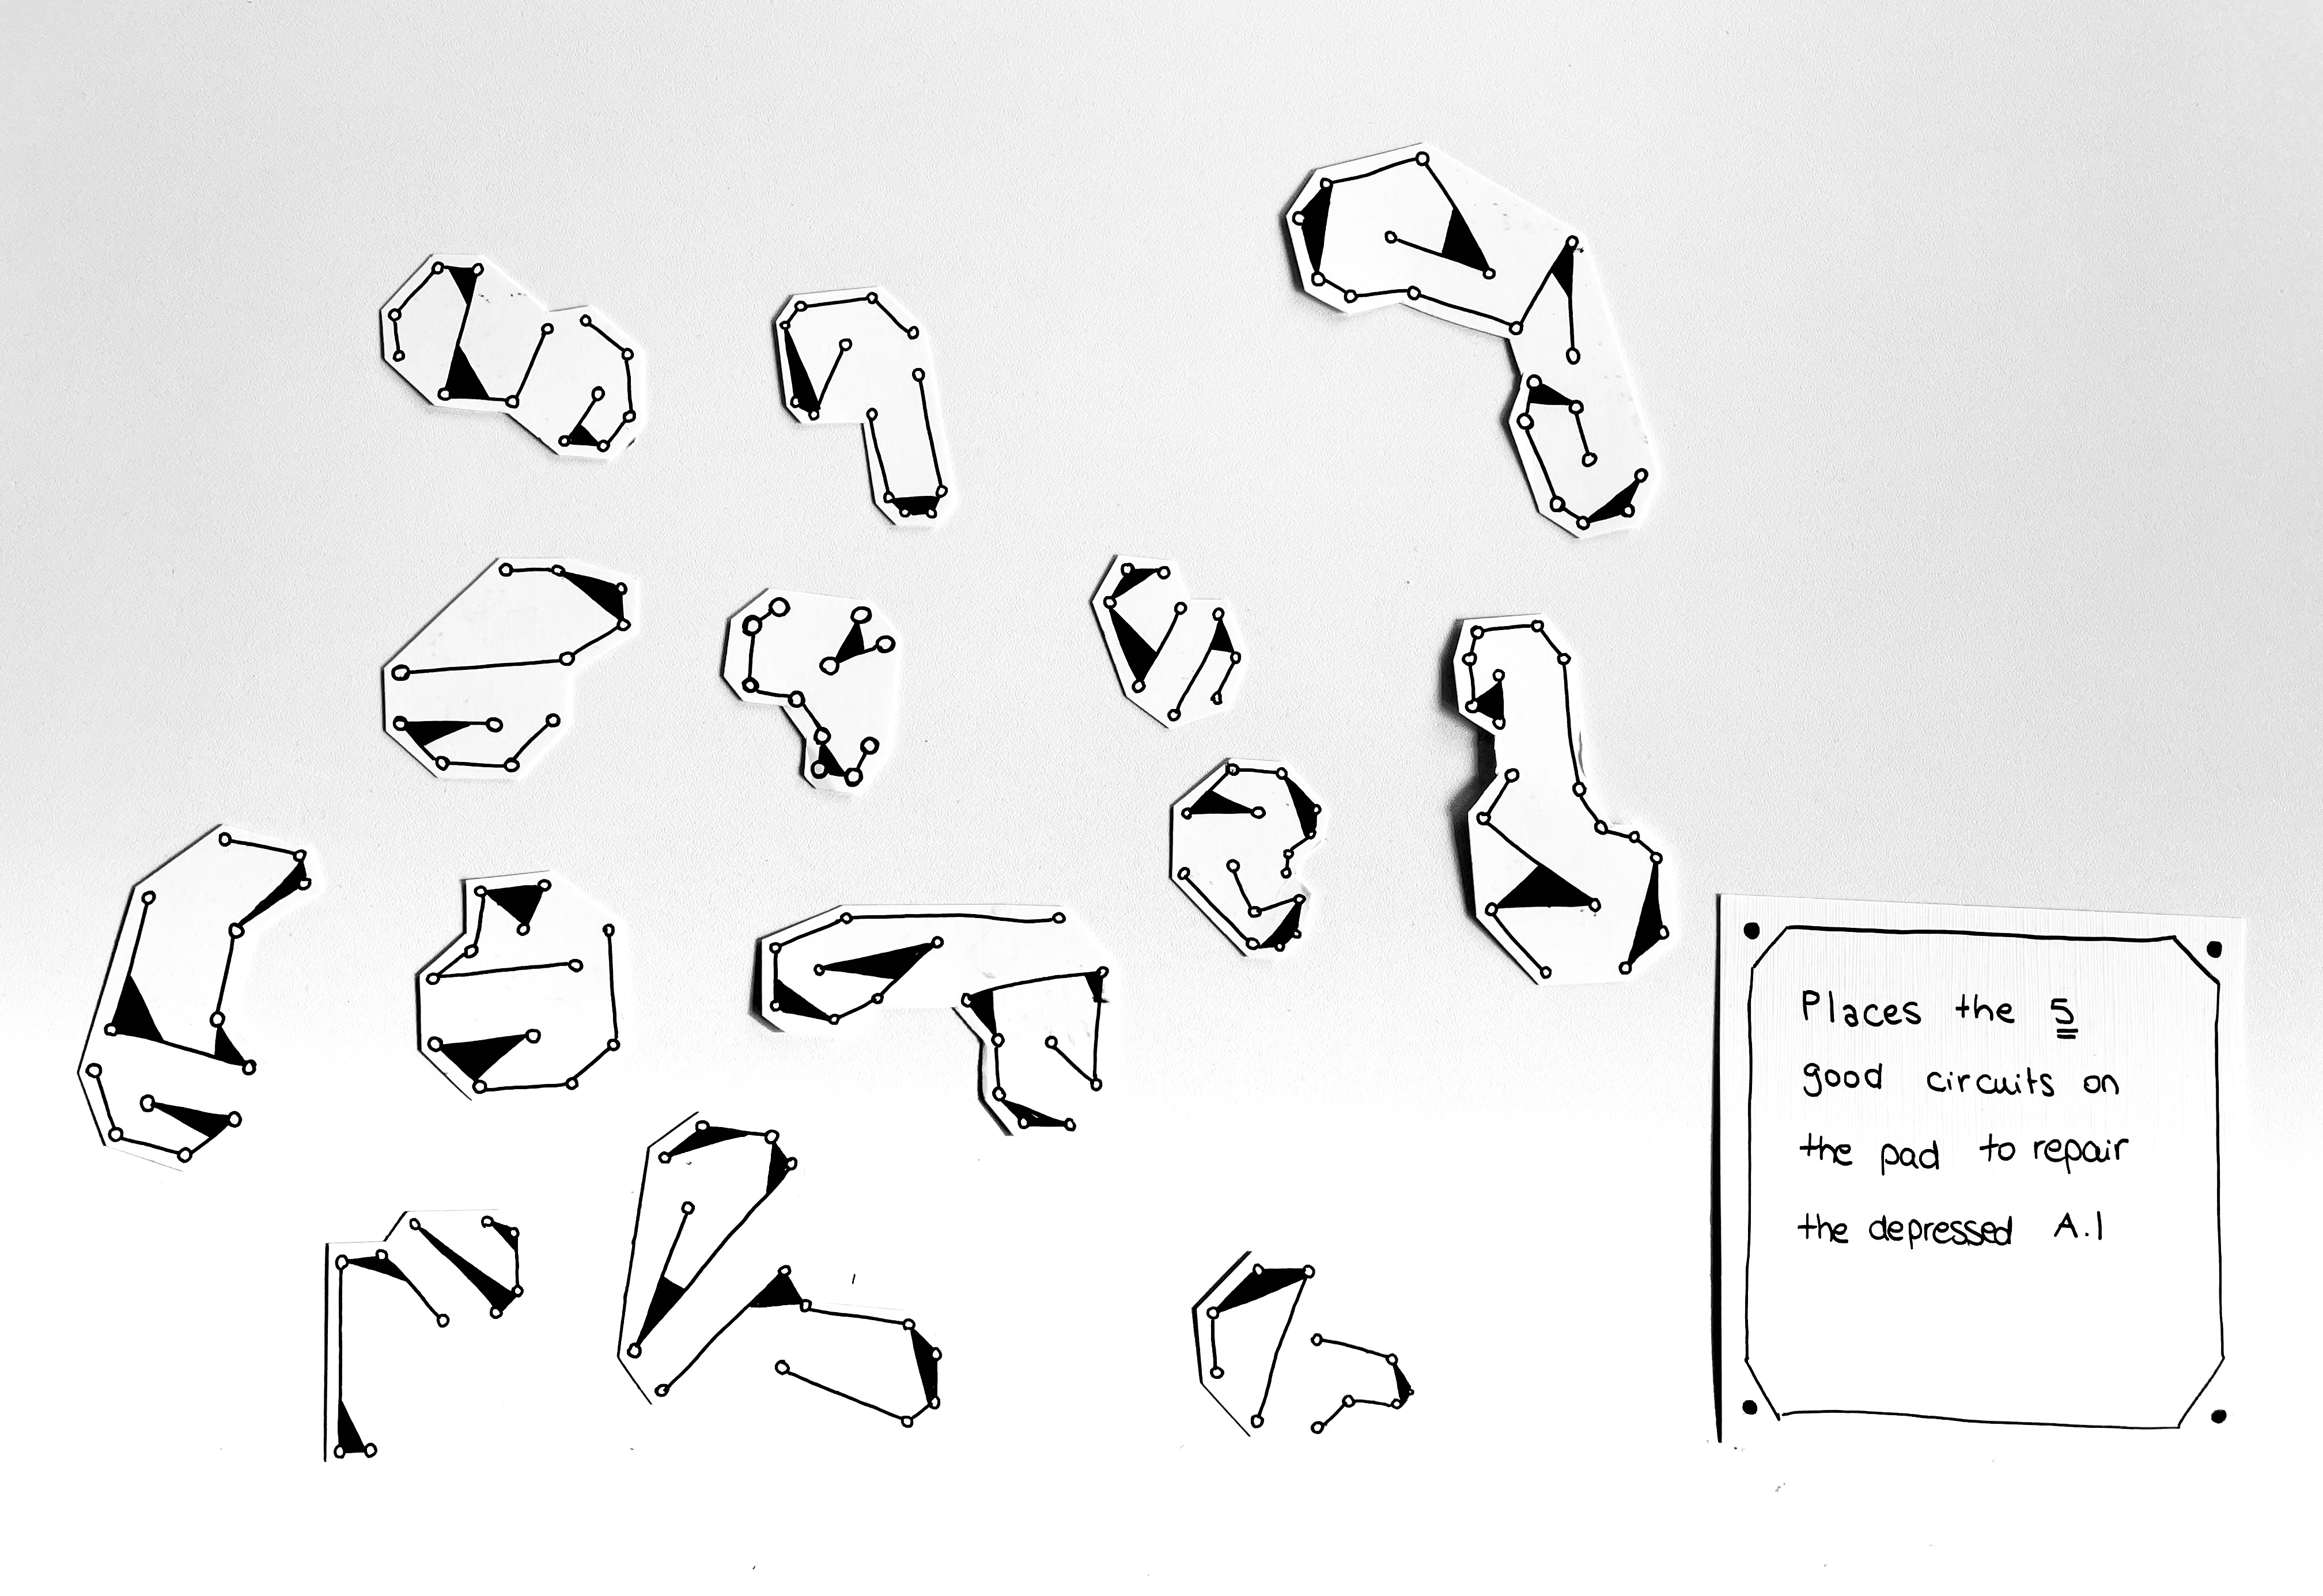 Places the 5
good circuits on
the pad to repair
the depressed A.I